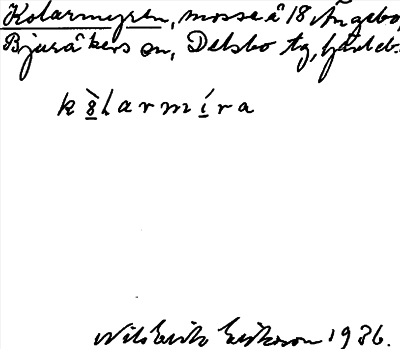 Kolarmyren, mosse å 18 Ängebo,
Bjuråkers sn, Delsbo tg, Gävleb.
k ò̱l a r m í̱ r a
Nils Erik Eriksson 1936.